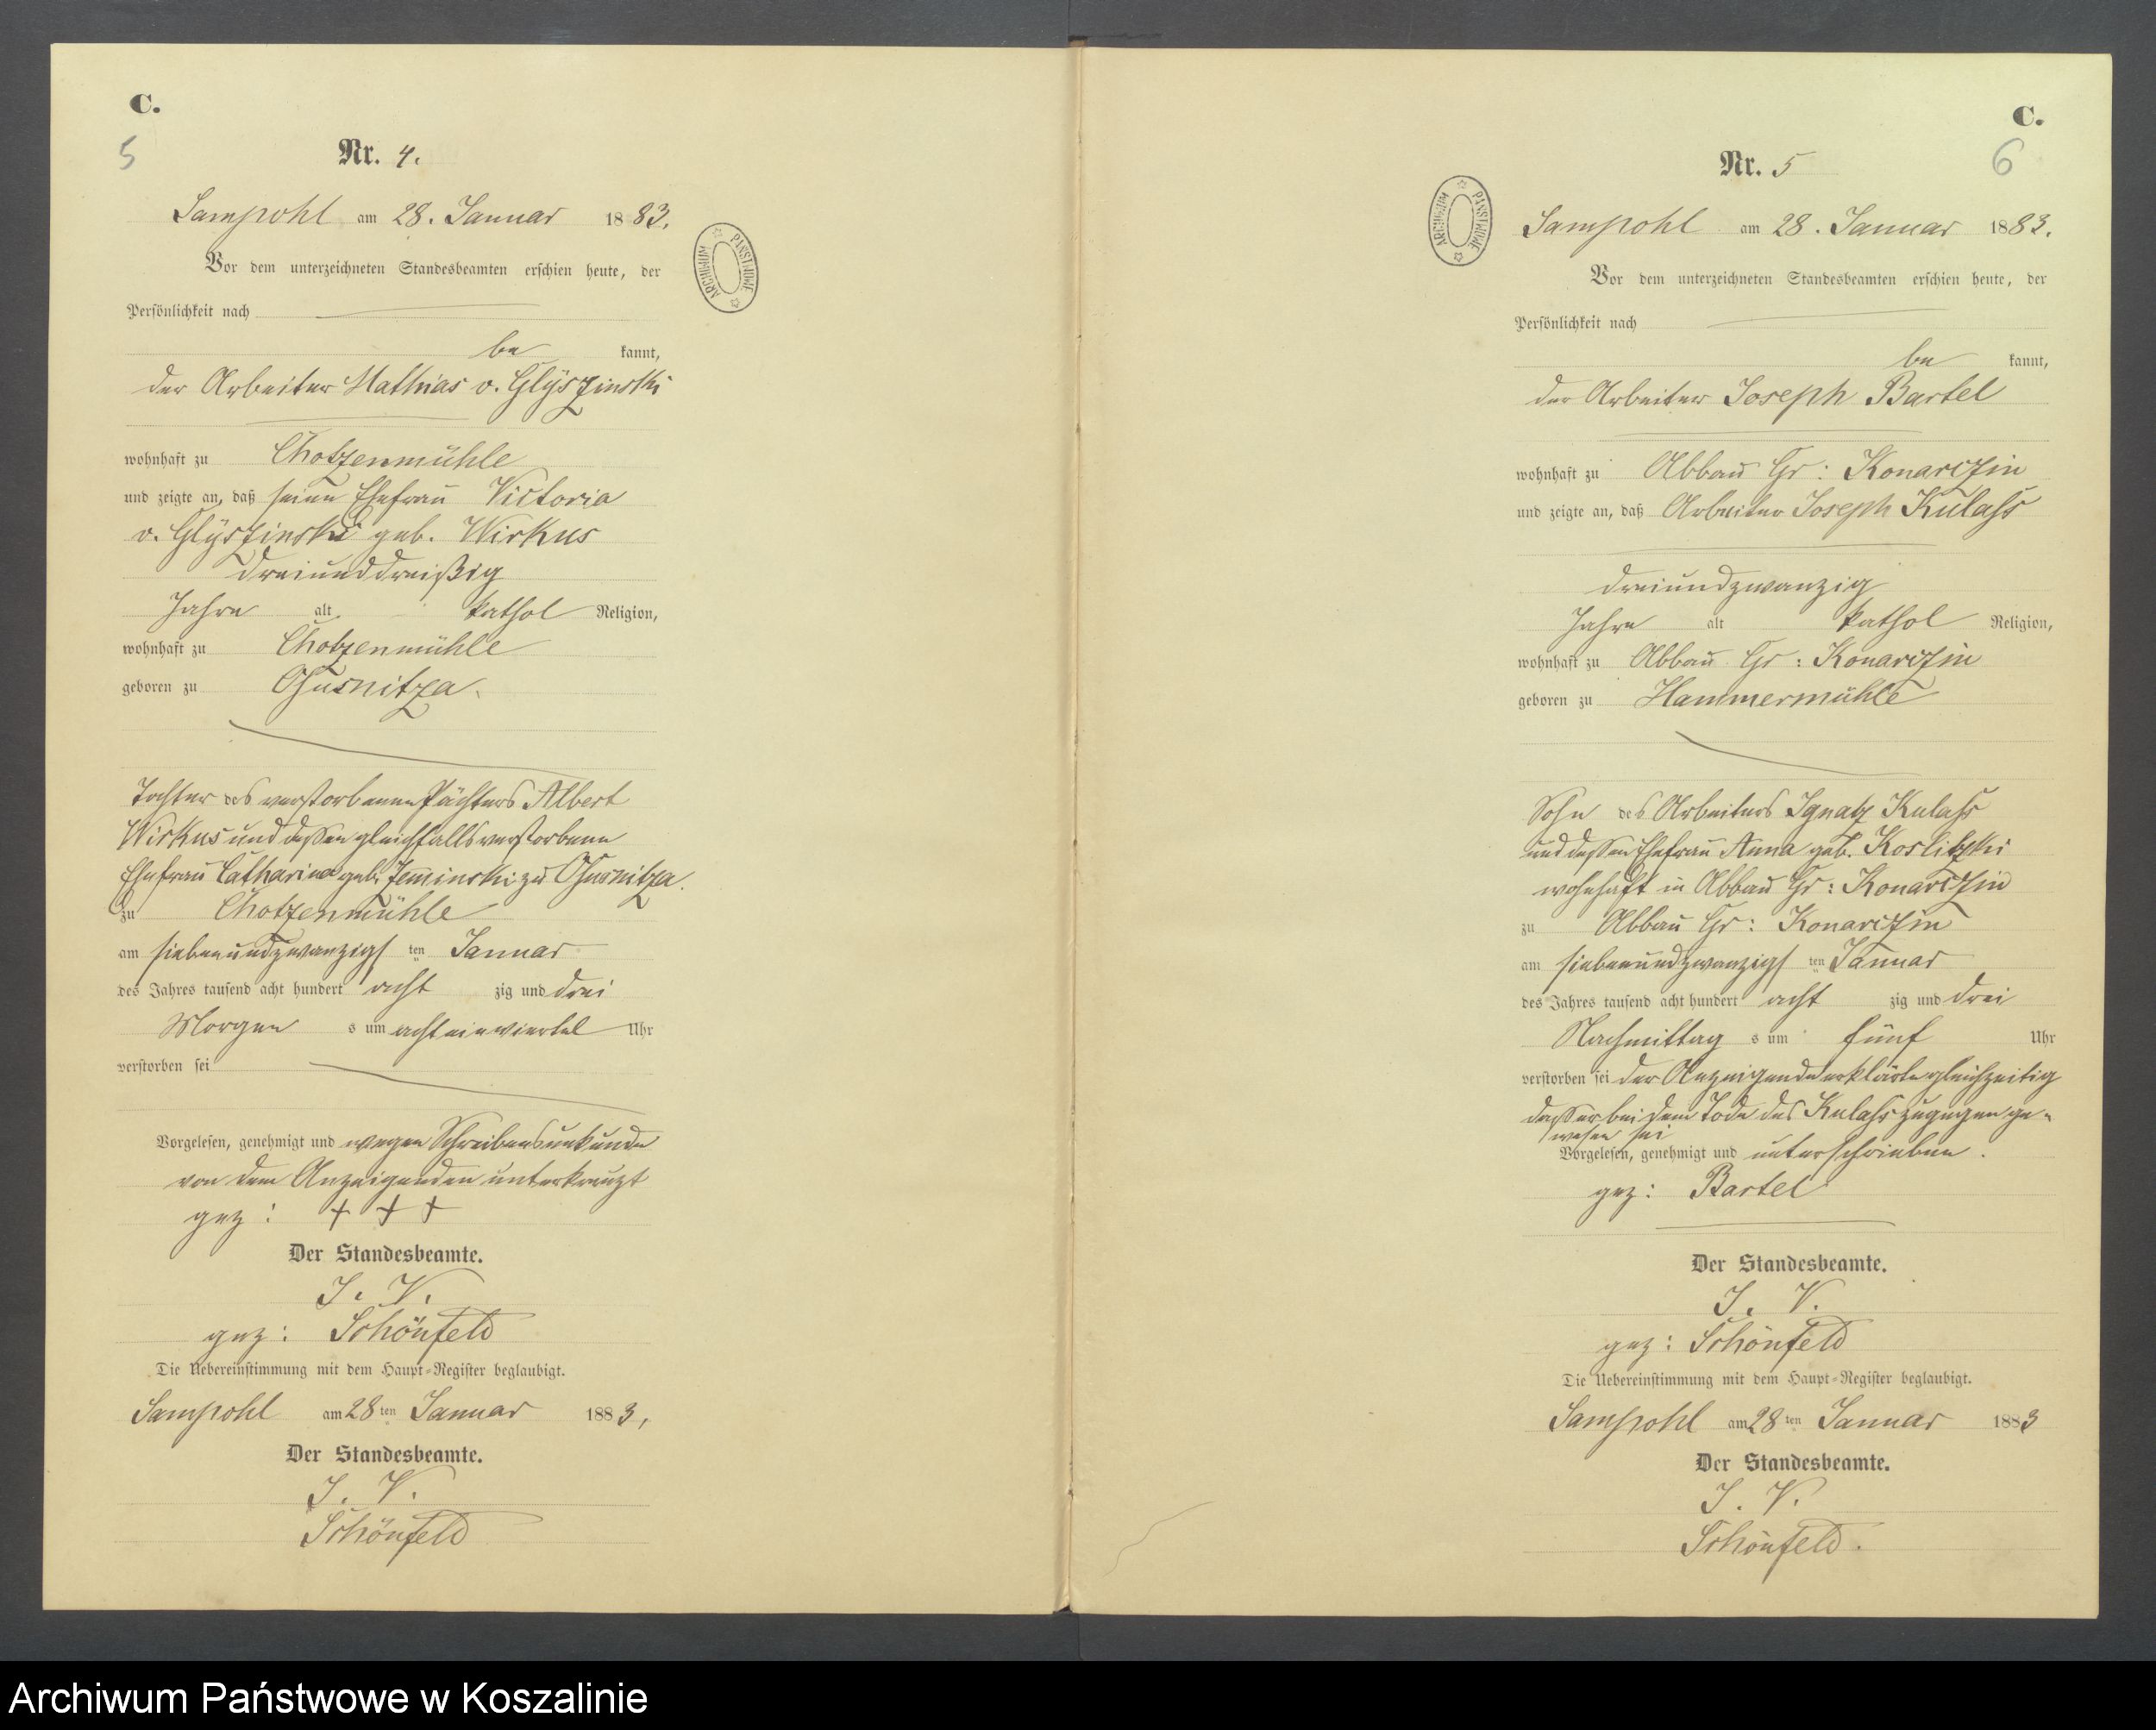 C.
5
Nr. 4.
Sampohl am 28. Januar 1883.
Vor dem unterzeichneten Standesbeamten erschien heute, der
Persönlichkeit nach
be kannt,
der Arbeiter Mathias v. Glyszinski
wohnhaft zu Chotzenmühle
und zeigte an, daß seine Ehefrau Victoria
v. Glyszinski geb. Wirkus
dreiunddreißig
Jahre alt kathol Religion,
wohnhaft zu Chotzenmühle
geboren zu Ossusnitza.
Tochter des verstorbenen Pächters Albert
Wirkus und dessen gleichfalls verstorbene
Ehefrau Catharina geb. zu
zu Chotzenmühle
am siebenundzwanzigs ten Januar
des Jahres tausend acht hundert acht zig und drei
Morgen s um acht ein viertel Uhr
verstorben sei
Vorgelesen, genehmigt und wegen Schreibensunkunde
von dem Anzeigenden unterkreuzt
gez: + + +
Der Standesbeamte.
J. V.
gez: Schönfeld
Die Uebereinstimmung mit dem Haupt-Register beglaubigt.
Sampohl am 28 ten Januar 1883,
Der Standesbeamte.
J. V.
Schönfeld
ARCHIWUM PAŃSTWOWE
C.
6
Nr. 5
Sampohl am 28. Januar 1883.
Vor dem unterzeichneten Standesbeamten erschien heute, der
Persönlichkeit nach
be kannt,
der Arbeiter Joseph Bartel
wohnhaft zu Abbau Gr: Konarczin
und zeigte an, daß Arbeiter Joseph Kulass
dreiundzwanzig
Jahre alt kathol Religion,
wohnhaft zu Abbau Gr: Konarczin
geboren zu Hammermühle
Sohn des Arbeiters Ignatz Kulass
und dessen Ehefrau Anna geb. Koslitzki
wohnhaft in Abbau Gr: Konarczin
zu Abbau Gr: Konarczin
am siebenundzwanzigs ten Januar
des Jahres tausend acht hundert acht zig und drei
Nachmittag s um fünf Uhr
verstorben sei der Anzeigende erklärte gleichzeitig
dass er bei dem Tode des Kulass zugegen ge-
wesen sei
Vorgelesen, genehmigt und unterschrieben.
gez: Bartel
Der Standesbeamte.
J. V.
gez: Schönfeld
Die Uebereinstimmung mit dem Haupt-Register beglaubigt.
Sampohl am 28 ten Januar 1883
Der Standesbeamte.
J. V.
Schönfeld.
ARCHIWUM PAŃSTWOWE
Archiwum Państwowe w Koszalinie